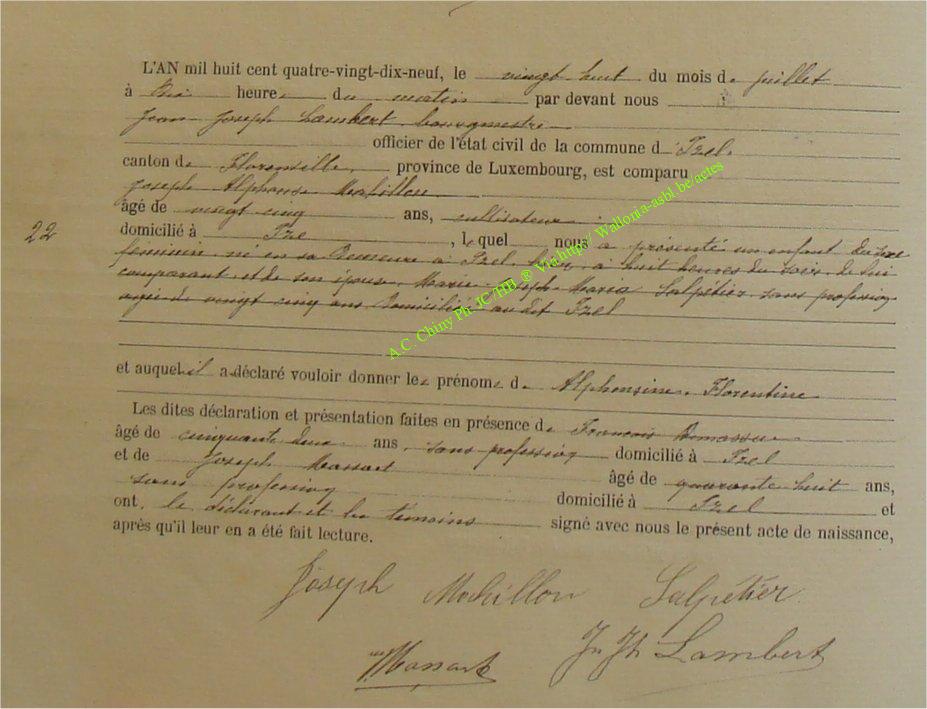 L'AN mil huit cent quatre-vingt-dix-neuf, le vingt-huit du mois de juillet
à heure du matin par devant nous
Jean Joseph Lambert bourgmestre
officier de l'état civil de la commune d Izel
canton de Florenville province de Luxembourg, est comparu
Joseph Alphonse Machillon
âgé de vingt cinq ans, cultivateur
22
domicilié à Izel, lequel nous a présenté un enfant du sexe
féminin, né en sa demeure à Izel, hier, à huit heures du soir, de lui
comparant, et de son épouse, Marie Joseph Maria Salpétier, sans profession
agée de vingt cinq ans domiciliée au dit Izel
A.C. Chiny Ph JC /HB ® Viahups/ Wallonia-asbl.be/actes
et auquel il a déclaré vouloir donner les prénoms de Alphonsine, Florentine
Les dites déclaration et présentation faites en présence de François
âgé de cinquante deux ans, sans profession domicilié à Izel
et de Joseph Massart âgé de quarante huit ans,
sans profession domicilié à Izel et
ont, le déclarant et les témoins signé avec nous le présent acte de naissance,
après qu'il leur en a été fait lecture.
Joseph Machillon Salpétier
Massart Jn Jh Lambert